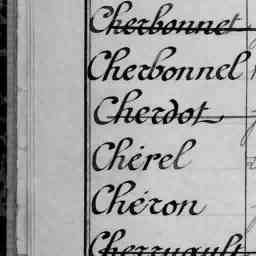 Cherbonnet
Cherbonnel
Cherdot
Chérel
Chéron
Cherruault